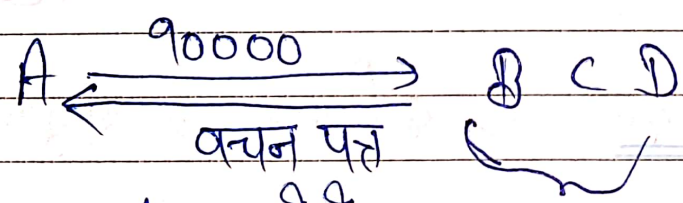 90000
A B C D
वचन पत्र